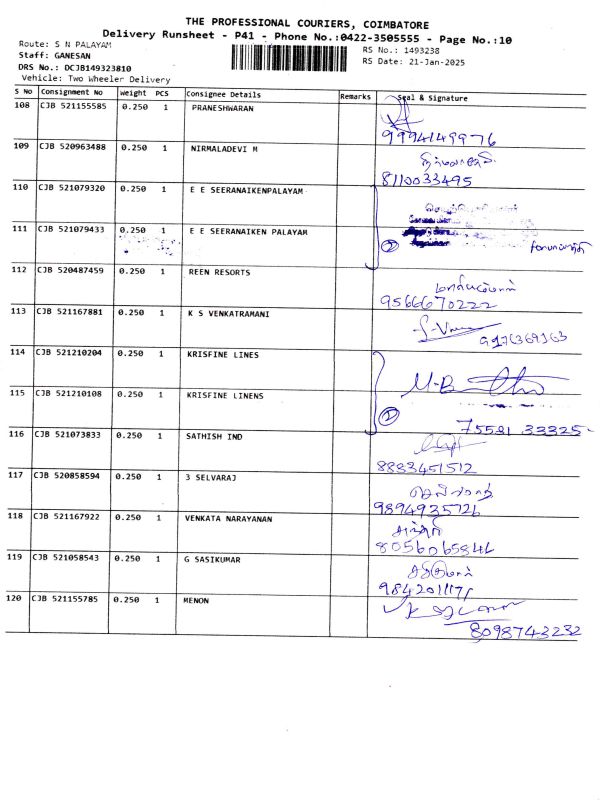 THE PROFESSIONAL COURIERS, COIMBATORE
Delivery Runsheet - P41 - Phone No.:0422-3505555 - Page No.:10
Route: S N PALAYAM
RS No.: 1493238
Staff: GANESAN
RS Date: 21-Jan-2025
DRS No.: DCJB149323810
Vehicle: Two Wheeler Delivery
S No Consignment No Weight PCS Consignee Details Remarks Seal & Signature
108 CJB 521155585 0.250 1 PRANESHWARAN
9994149976
109 CJB 520963488 0.250 1 NIRMALADEVI M
8110033495
110 CJB 521079320 0.250 1 E E SEERANAIKENPALAYAM
111 CJB 521079433 0.250 1 E E SEERANAIKEN PALAYAM
2
112 CJB 520487459 0.250 1 REEN RESORTS
9566670222
113 CJB 521167881 0.250 1 K S VENKATRAMANI
114 CJB 521210204 0.250 1 KRISFINE LINES
115 CJB 521210108 0.250 1 KRISFINE LINENS
75521 33325
116 CJB 521073833 0.250 1 SATHISH IND
8883451512
117 CJB 520858594 0.250 1 3 SELVARAJ
9894935726
118 CJB 521167922 0.250 1 VENKATA NARAYANAN
119 CJB 521058543 0.250 1 G SASIKUMAR
120 CJB 521155785 0.250 1 MENON
8098743232